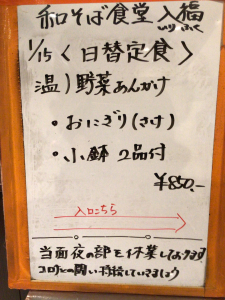 和そば食堂 入福
1/15 〈 日替定食 〉
温) 野菜あんかけ
・おにぎり(さけ)
・小鉢 2品付
¥850.-
入口こちら
当面夜の部を休業しております
コロナとの闘い 頑張っていきましょう